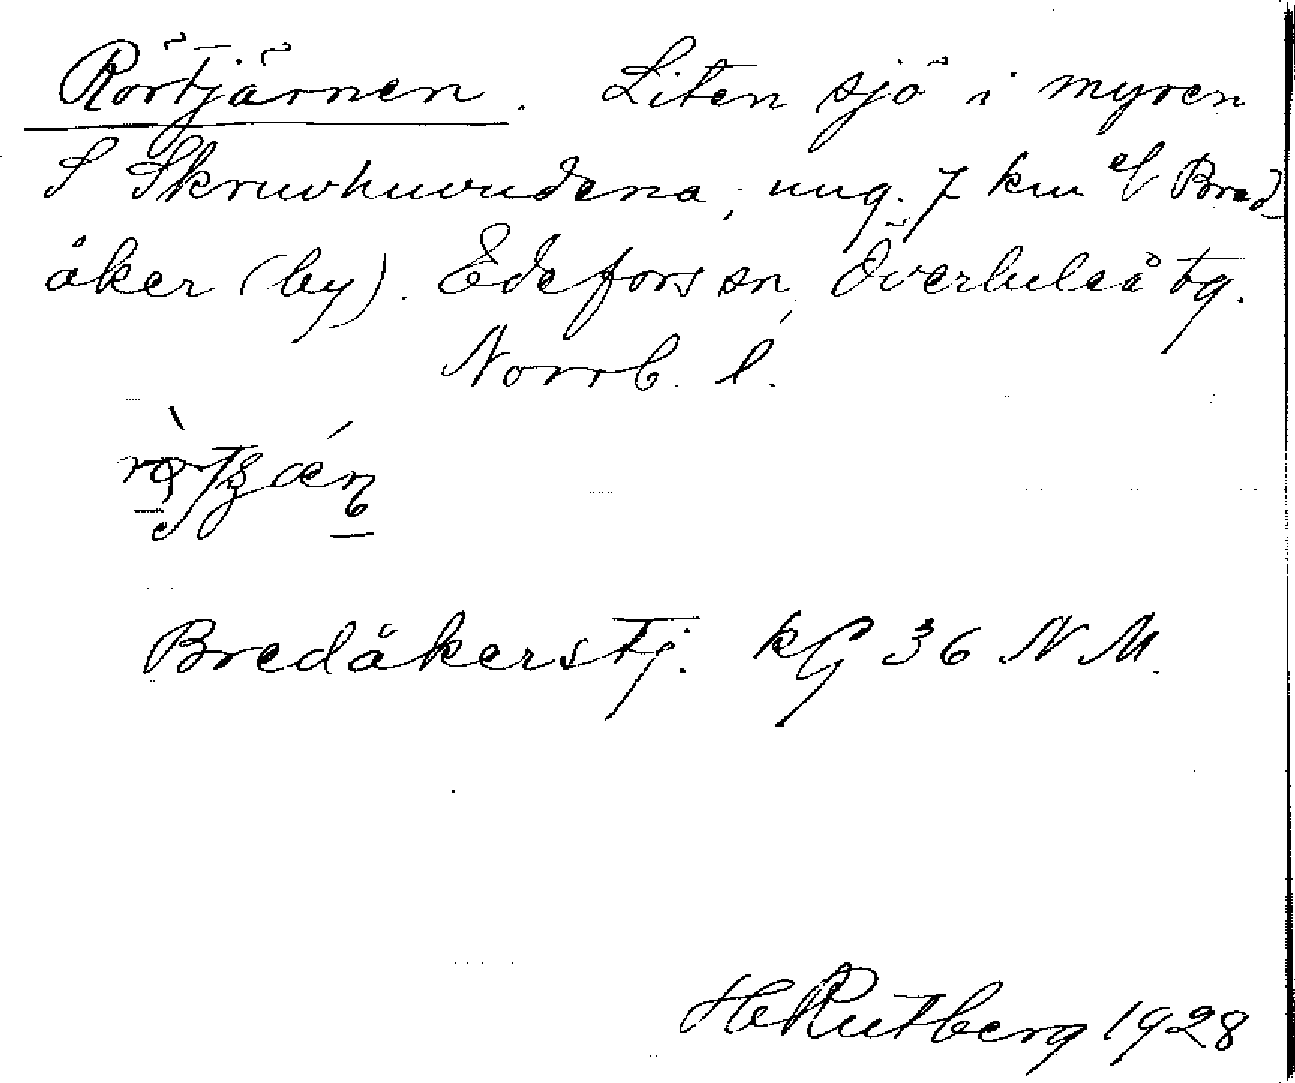 Rörtjärnen. Liten sjö i myren
S Skruvhuvudena, ung. 7 km S Bred-
åker (by). Edefors sn, Överluleå tg.
Norrb. l.
Bredåkerstj. kG 36 N M.
HRutberg 1928